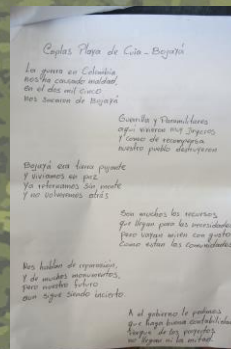 Coplas Playa de Cuia - Bojayá
La guerra en Colombia
nos ha causado maldad,
en el dos mil cinco
nos sacaron de Bojayá
Guerrilla y Paramilitares
aquí vivieron muy
y como de recompensa
nuestro pueblo destruyeron
Bojayá era tierra pujante
y vivíamos en paz
ya retornamos sin
y no volveremos atrás
Son muchos los recursos
que llegan para las necesidades
Pero vayan miren con gusto
Como están las comunidades
Nos hablan de reparación,
y de muchos monumentos,
pero nuestro futuro
aun sigue siendo incierto
A el gobierno le pedimos
que haga buena contabilidad
de los proyectos
no llegan ni la mitad.